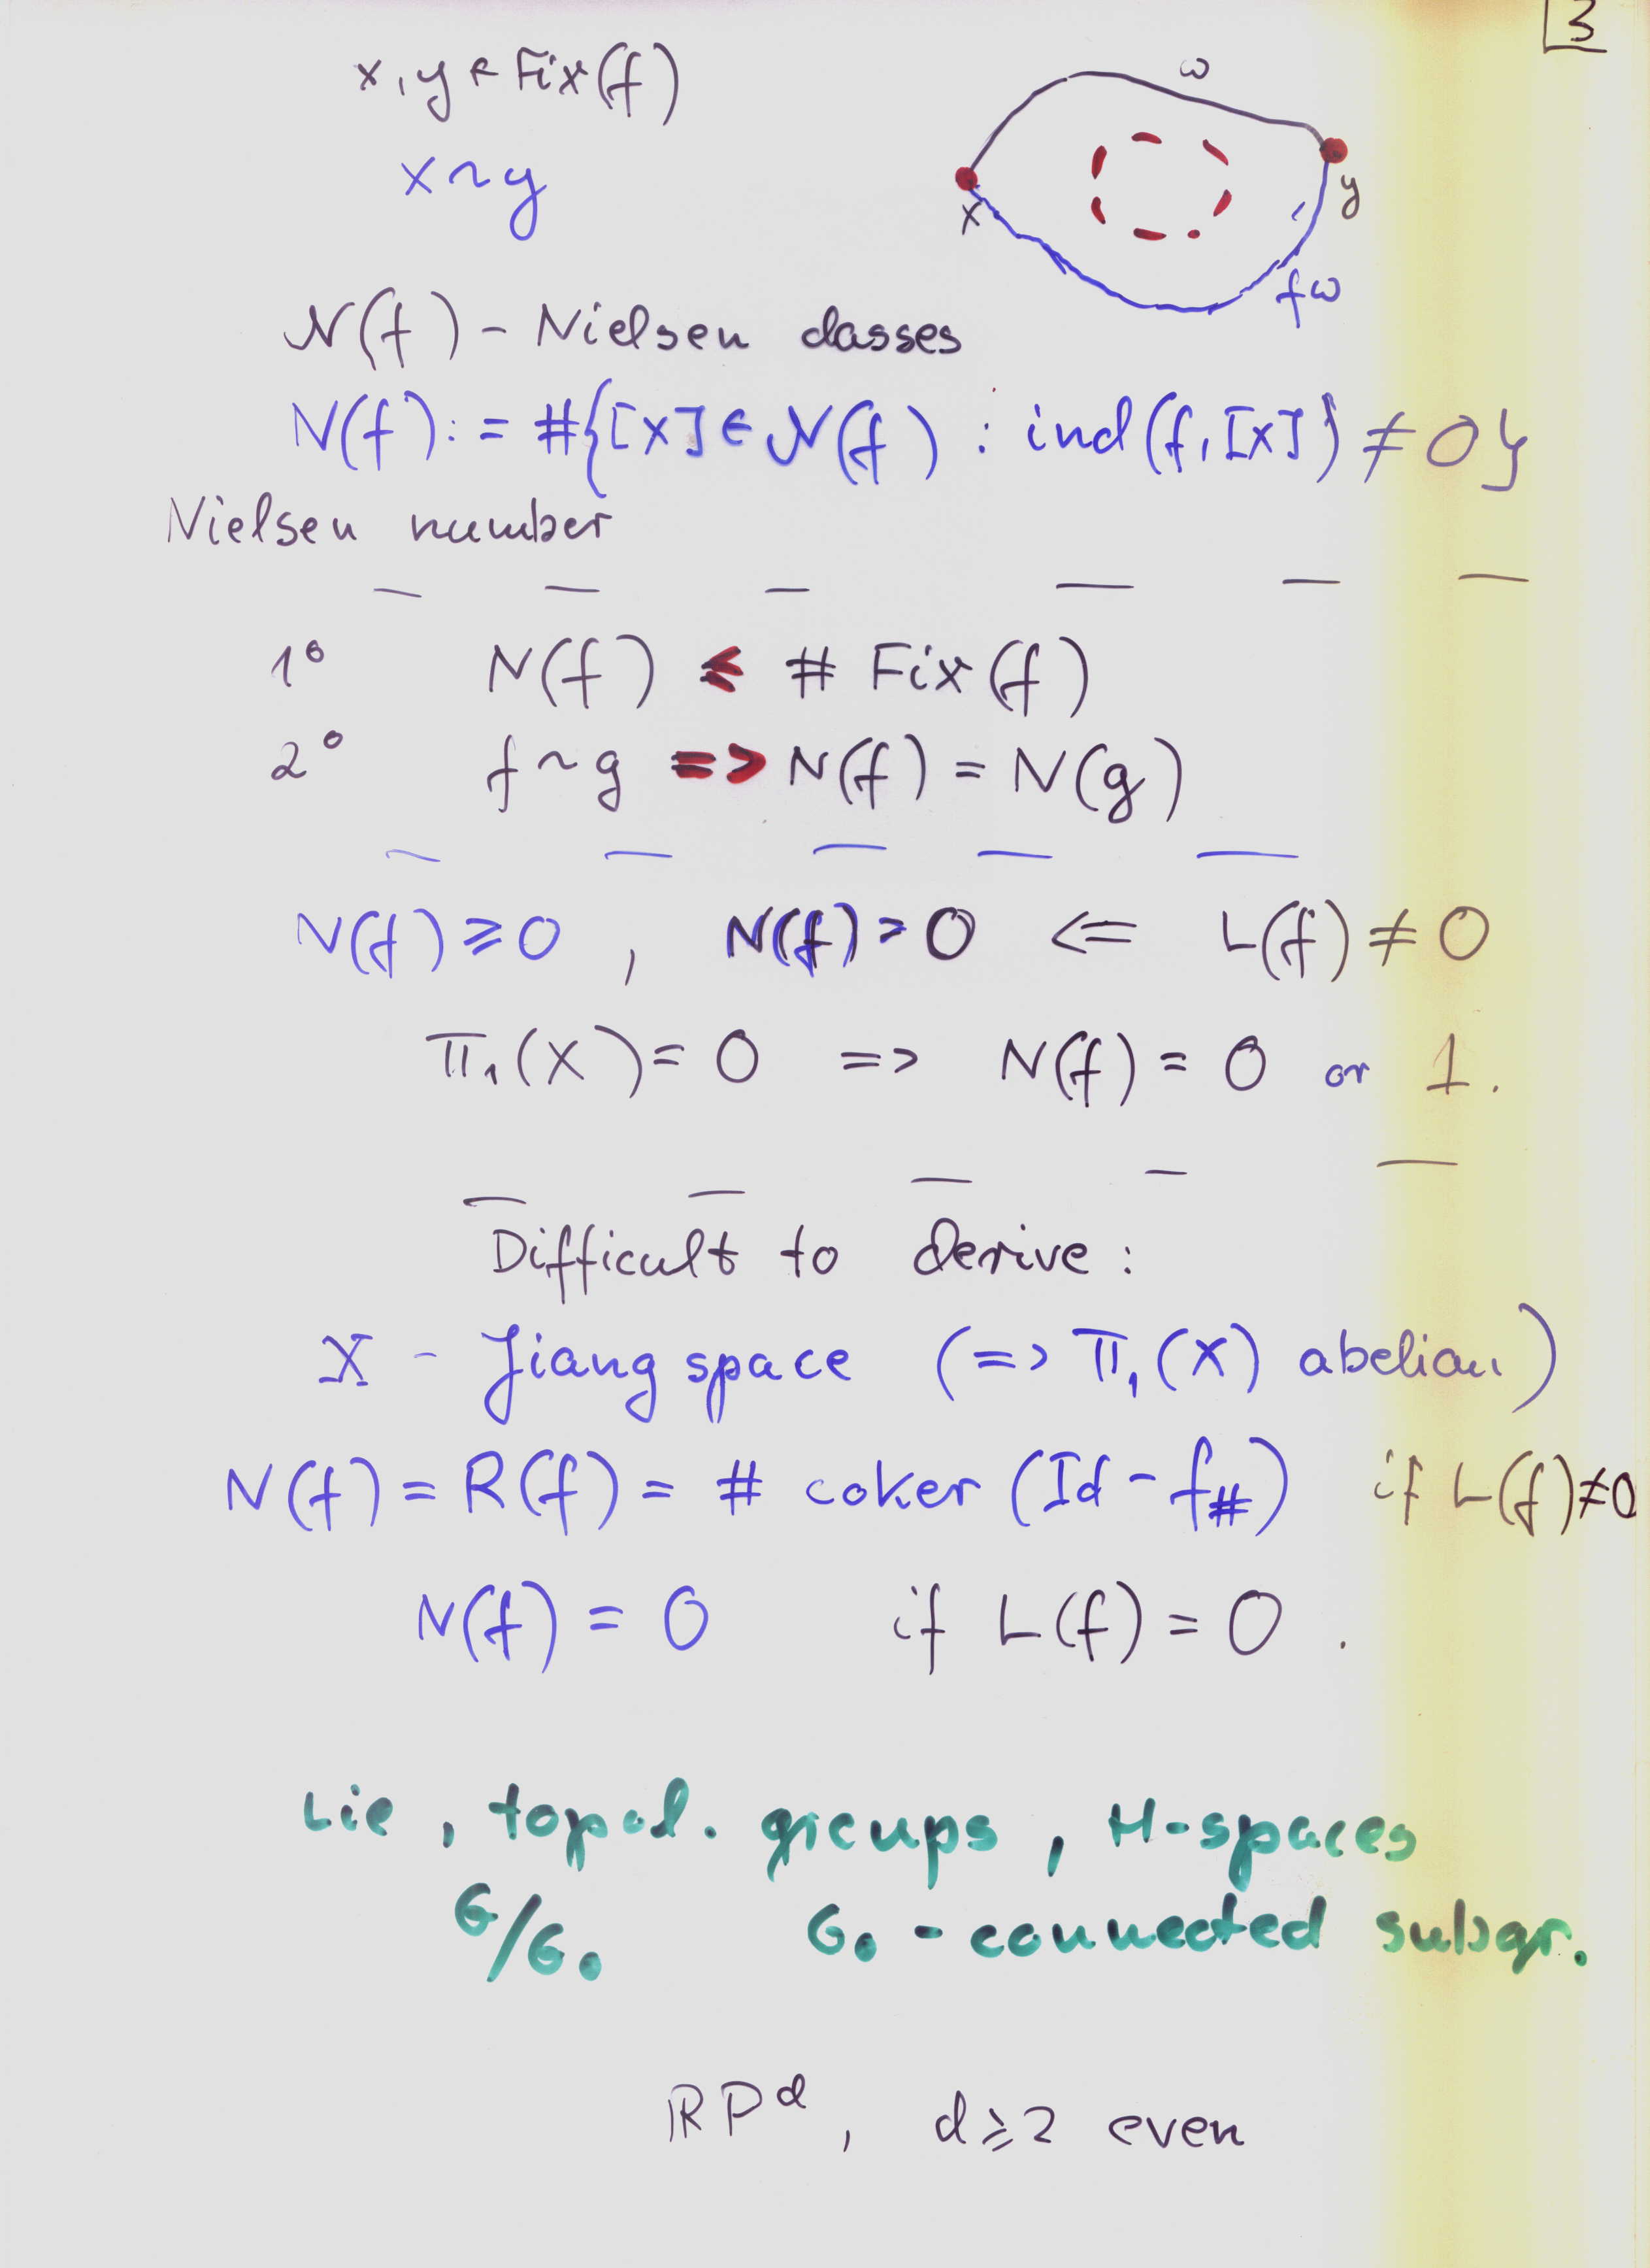 3
x, y ∈ Fix(f)
x ~ y
ω
x
y
fω
𝒩(f) - Nielsen classes
N(f) := #{[x] ∈ 𝒩(f) : ind(f,[x]) ≠ 0}
Nielsen number
1° N(f) ≤ # Fix(f)
2° f ~ g => N(f) = N(g)
N(f) ≥ 0 , N(f) > 0 <= L(f) ≠ 0
π₁(X) = 0 => N(f) = 0 or 1.
Difficult to derive :
X - Jiang space (=> π₁(X) abelian)
N(f) = R(f) = # coker (Id - f#) if L(f) ≠ 0
N(f) = 0 if L(f) = 0 .
Lie , topol. groups , H-spaces
G/G₀ G₀ - connected subgr.
ℝPᵈ , d ≥ 2 even